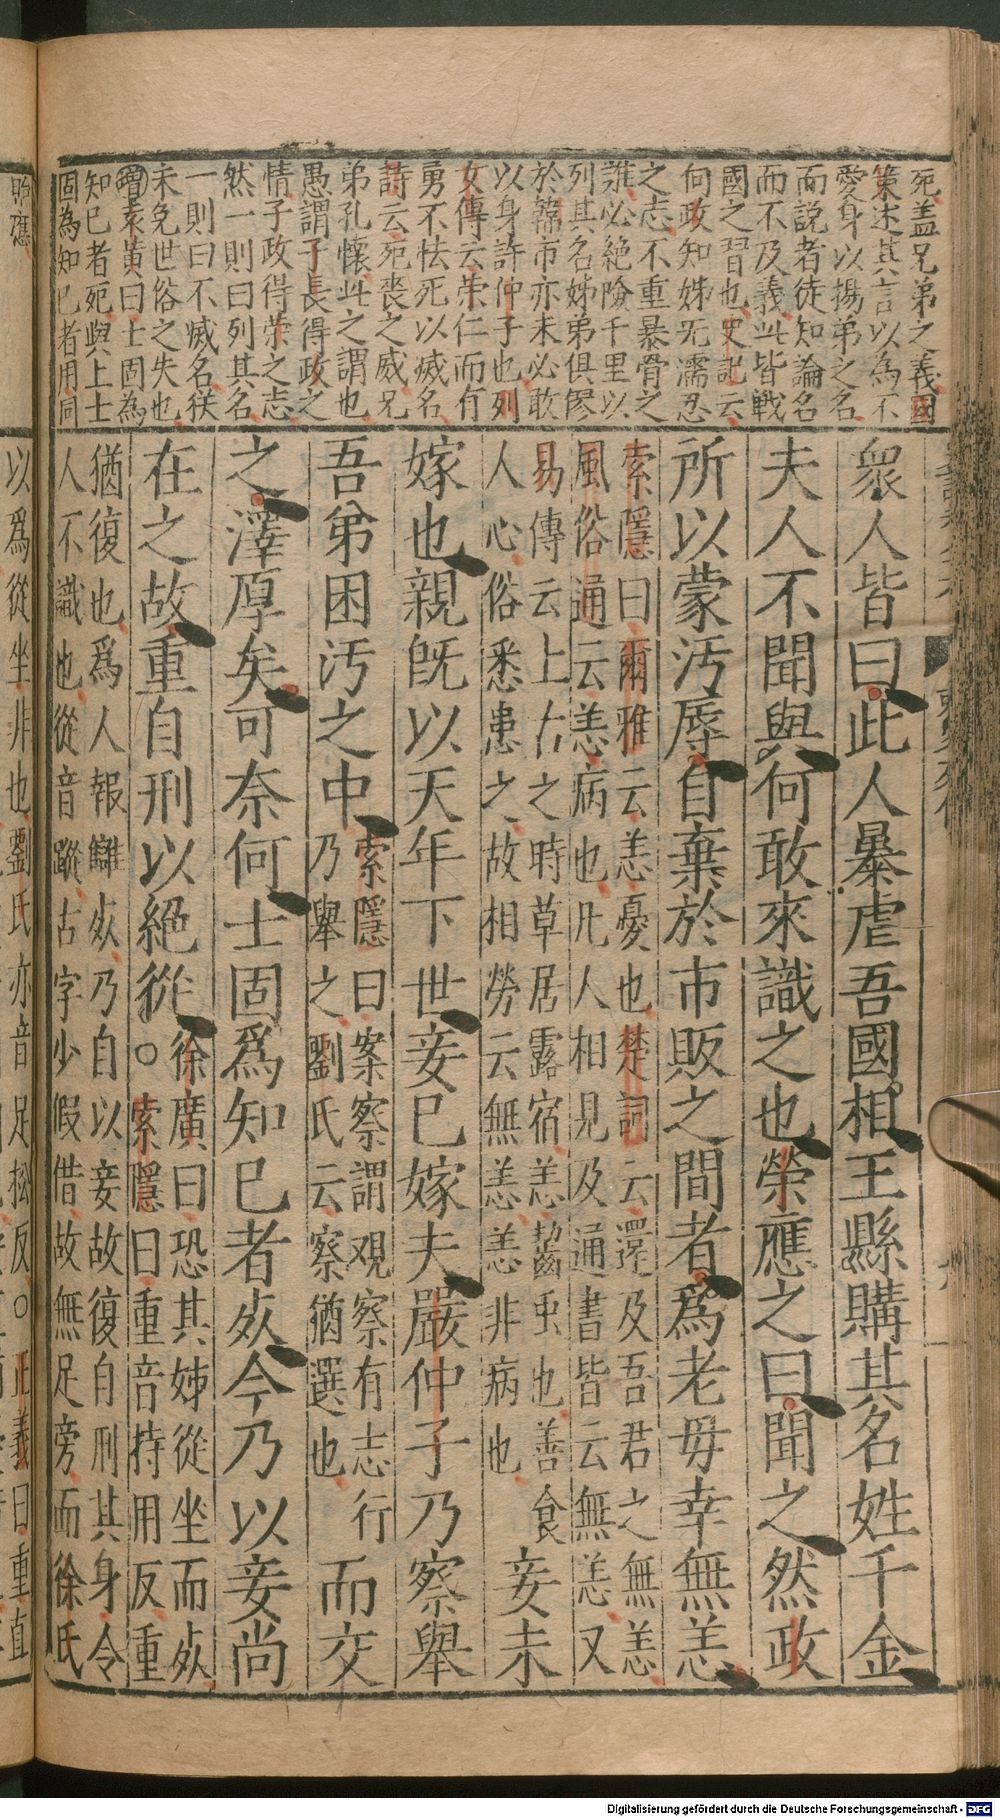 死蓋兄弟之義國
策述其言以為不
愛身以揚弟之名
而說者徒知論名
而不及義此皆戰
國之習也史記云
向政知姊无濡忍
之志不重暴骨之
難必絕險千里以
列其名姊弟俱僇
於韓市亦未必敢
以身許仲子也列
女傳云榮仁而有
勇不怯死以滅名
詩云死喪之威兄
弟孔懷此之謂也
愚謂子長得政之
情子政得榮之志
然一則曰列其名
一則曰不滅名終
未免世俗之失也
增袁黃曰士固為
知已者死與上士
固為知已者用同
衆人皆曰此人㬥虐吾國相王縣購其名姓千金
夫人不聞與何敢來識之也榮應之曰聞之然政
所以蒙汚辱自棄於市販之間者爲老毋幸無恙
索隱曰爾雅云恙憂也楚詞云還及吾君之無恙
風俗通云恙病也凡人相見及通書皆云無恙又
易傳云上古之時草居露宿恙齧虫也善食
人心俗悉患之故相勞云無恙恙非病也
妾未
嫁也親旣以天年下世妾已嫁夫嚴仲子乃察舉
吾弟困汚之中
索隱曰案察謂观察有志行
乃舉之劉氏云察猶選也
而交
之澤厚矣可奈何士固爲知已者㱙今乃以妾尚
在之故重自刑以絕從
徐廣曰恐其姊從坐而㱙
○索隱曰重音持用反重
猶復也爲人報讎㱙乃自以妾故復自刑其身令
人不識也從音蹤古字少假借故無足旁而徐氏
以爲從坐非也劉氏亦音足松反○正義曰重直
Digitalisierung gefördert durch die Deutsche Forschungsgemeinschaft - DFG